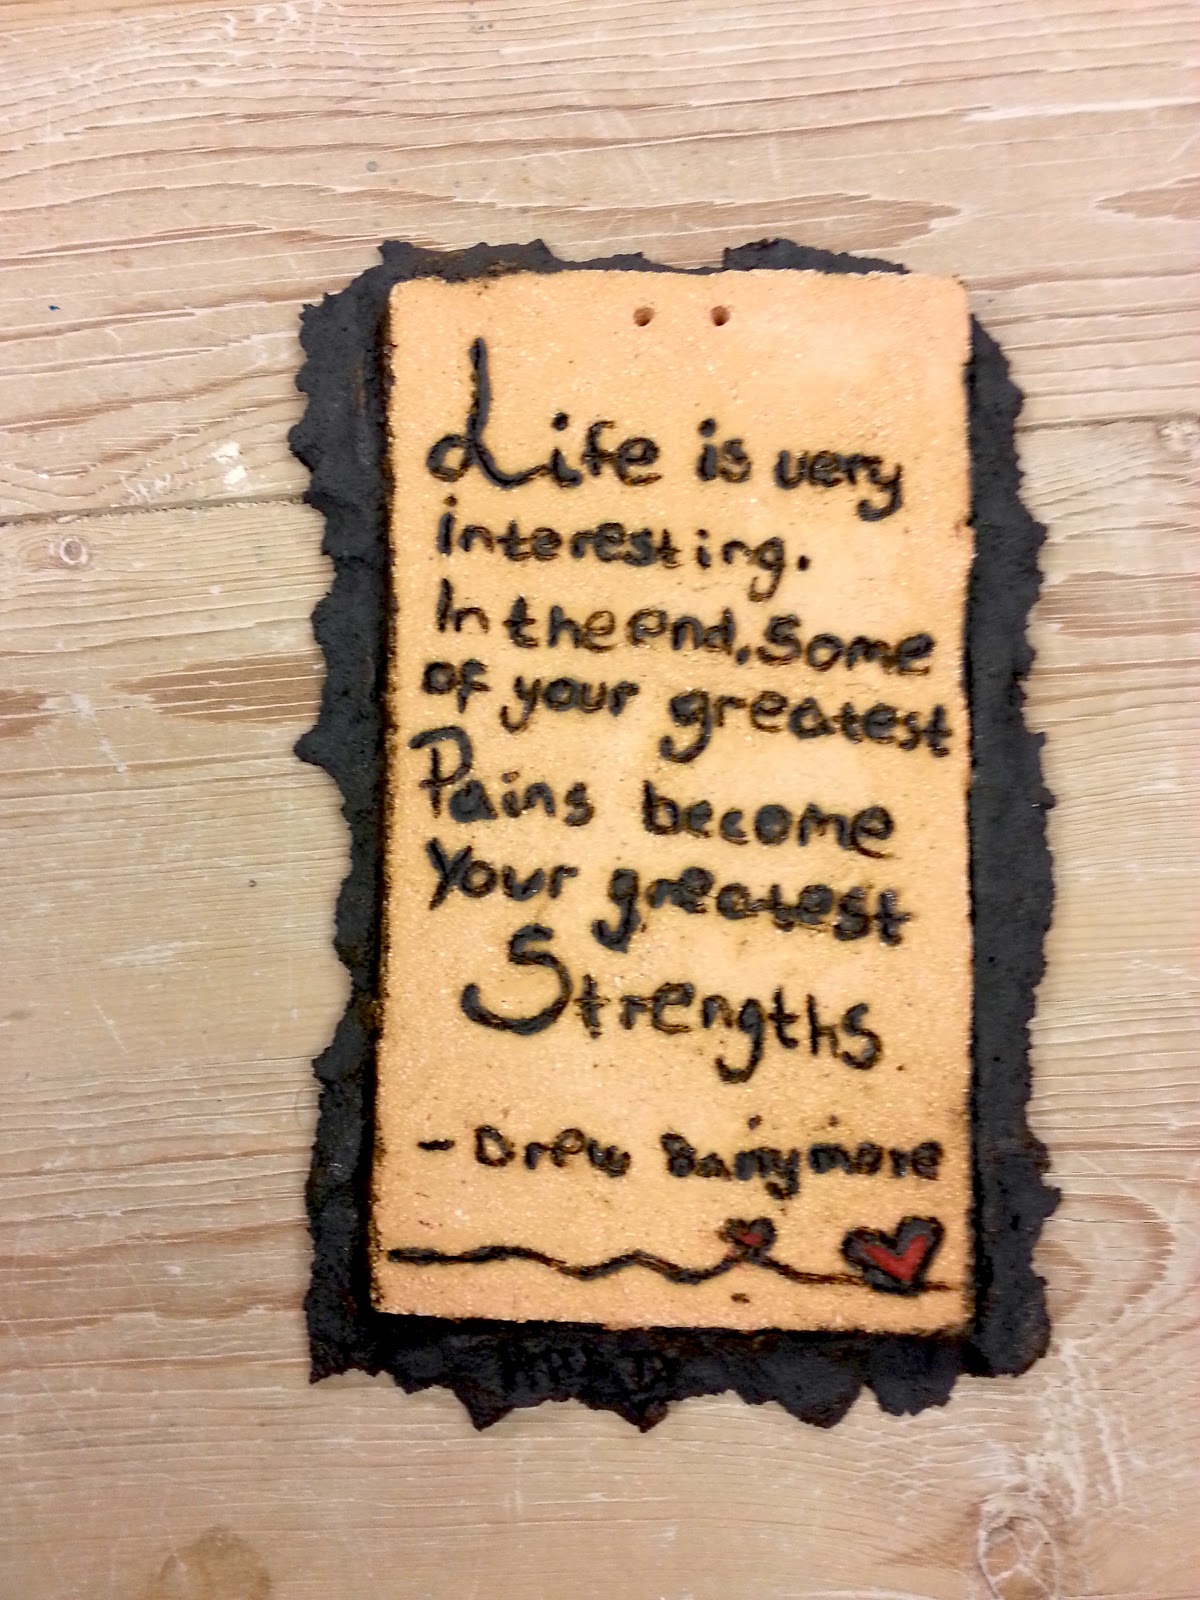 Life is very
interesting.
In the end, Some
of your greatest
Pains become
Your greatest
Strengths
- Drew Barrymore